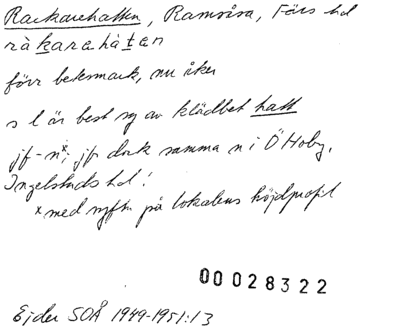 Rackarehatten, Ramsåsa, Färs hd
ràkarahàtęn
förr betesmark, nu åker
s l är best sg av klädbet hatt
jf-n*; jfr dock samma n i Ö Hoby,
Ingelstads hd!
*med syftn på lokalens höjdprofil
00028322
Ejder SOÅ 1949-1951:13